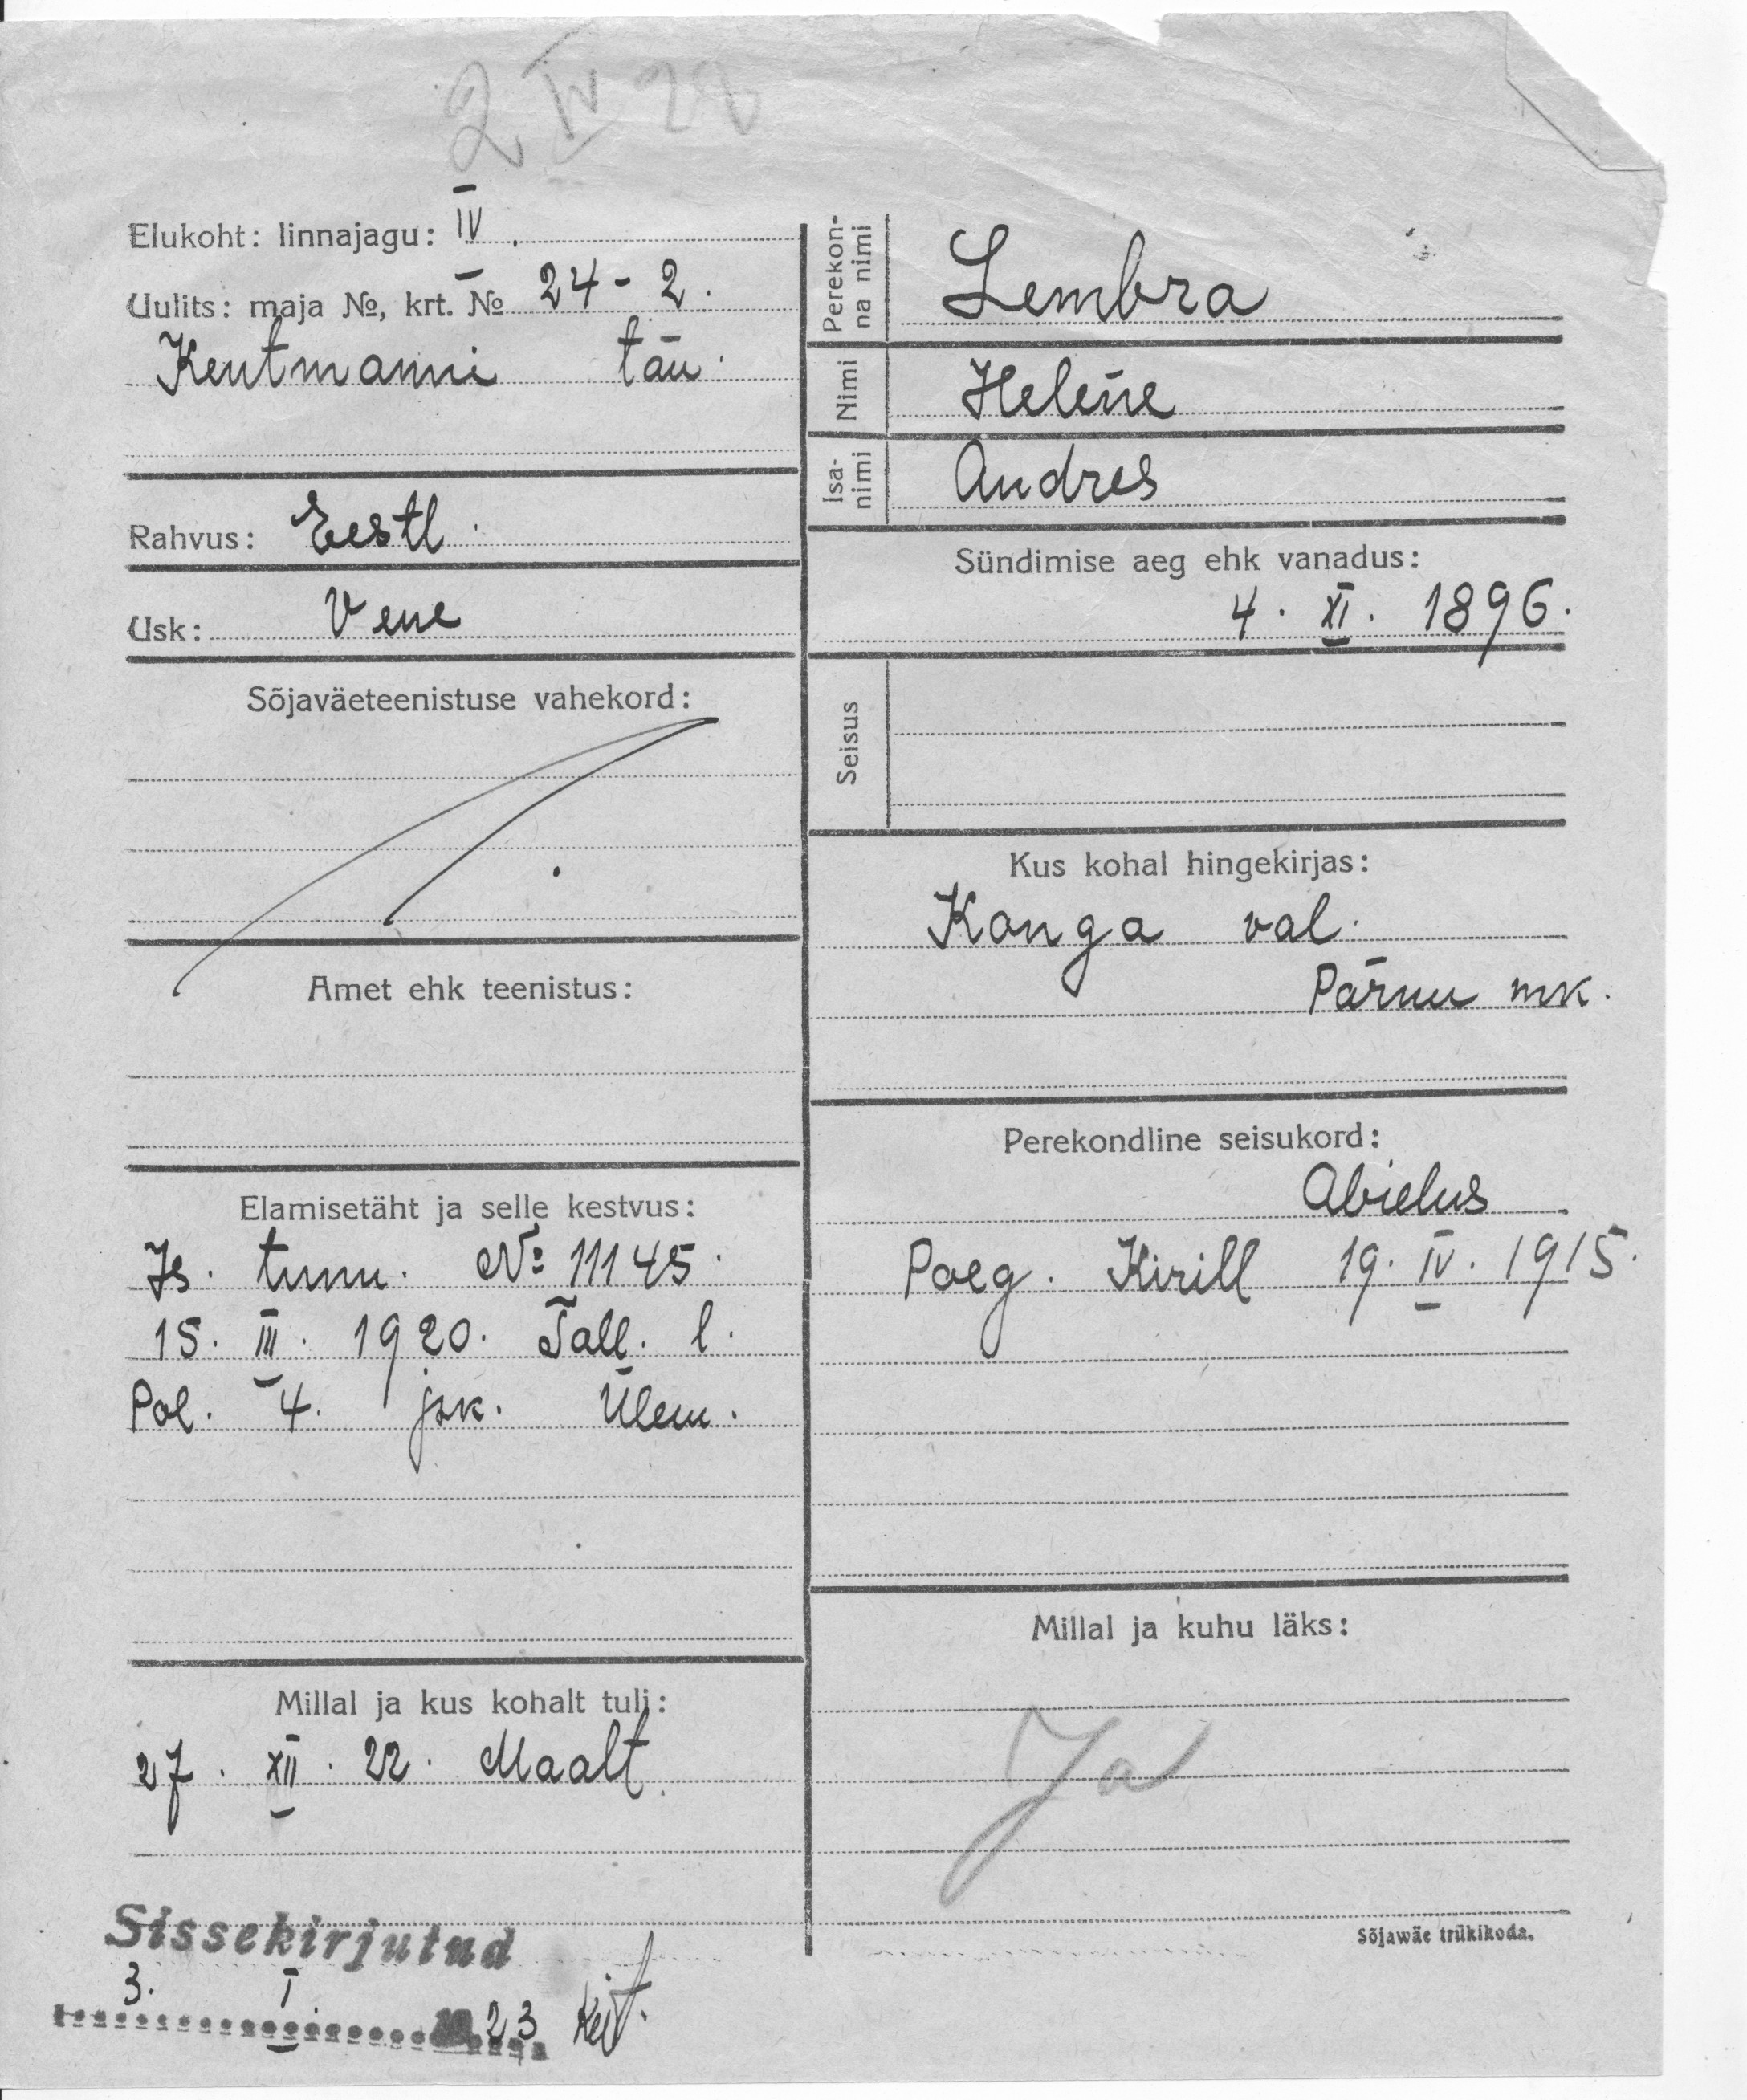 2 IV 28
Elukoht: linnajagu: IV.
Uulits: maja №, krt. № 24 - 2.
Kentmanni tän.
Rahvus: Eestl.
Usk: Vene
Sõjaväeteenistuse vahekord:
Amet ehk teenistus:
Elamisetäht ja selle kestvus:
Is. tunn. № 11145.
15. III. 1920. Tall. l.
Pol. 4. jsk. Ülem.
Millal ja kus kohalt tuli:
27. XII. 22. Maalt.
Sissekirjutud
3. I 1923
Perekonna nimi
Lembra
Nimi
Helene
Isanimi
Andres
Sündimise aeg ehk vanadus:
4. XI. 1896.
Seisus
Kus kohal hingekirjas:
Konga val.
Pärnu mk.
Perekondline seisukord:
Abielus
Poeg. Kirill 19. IV. 1915.
Millal ja kuhu läks:
Ja
Sõjawäe trükikoda.